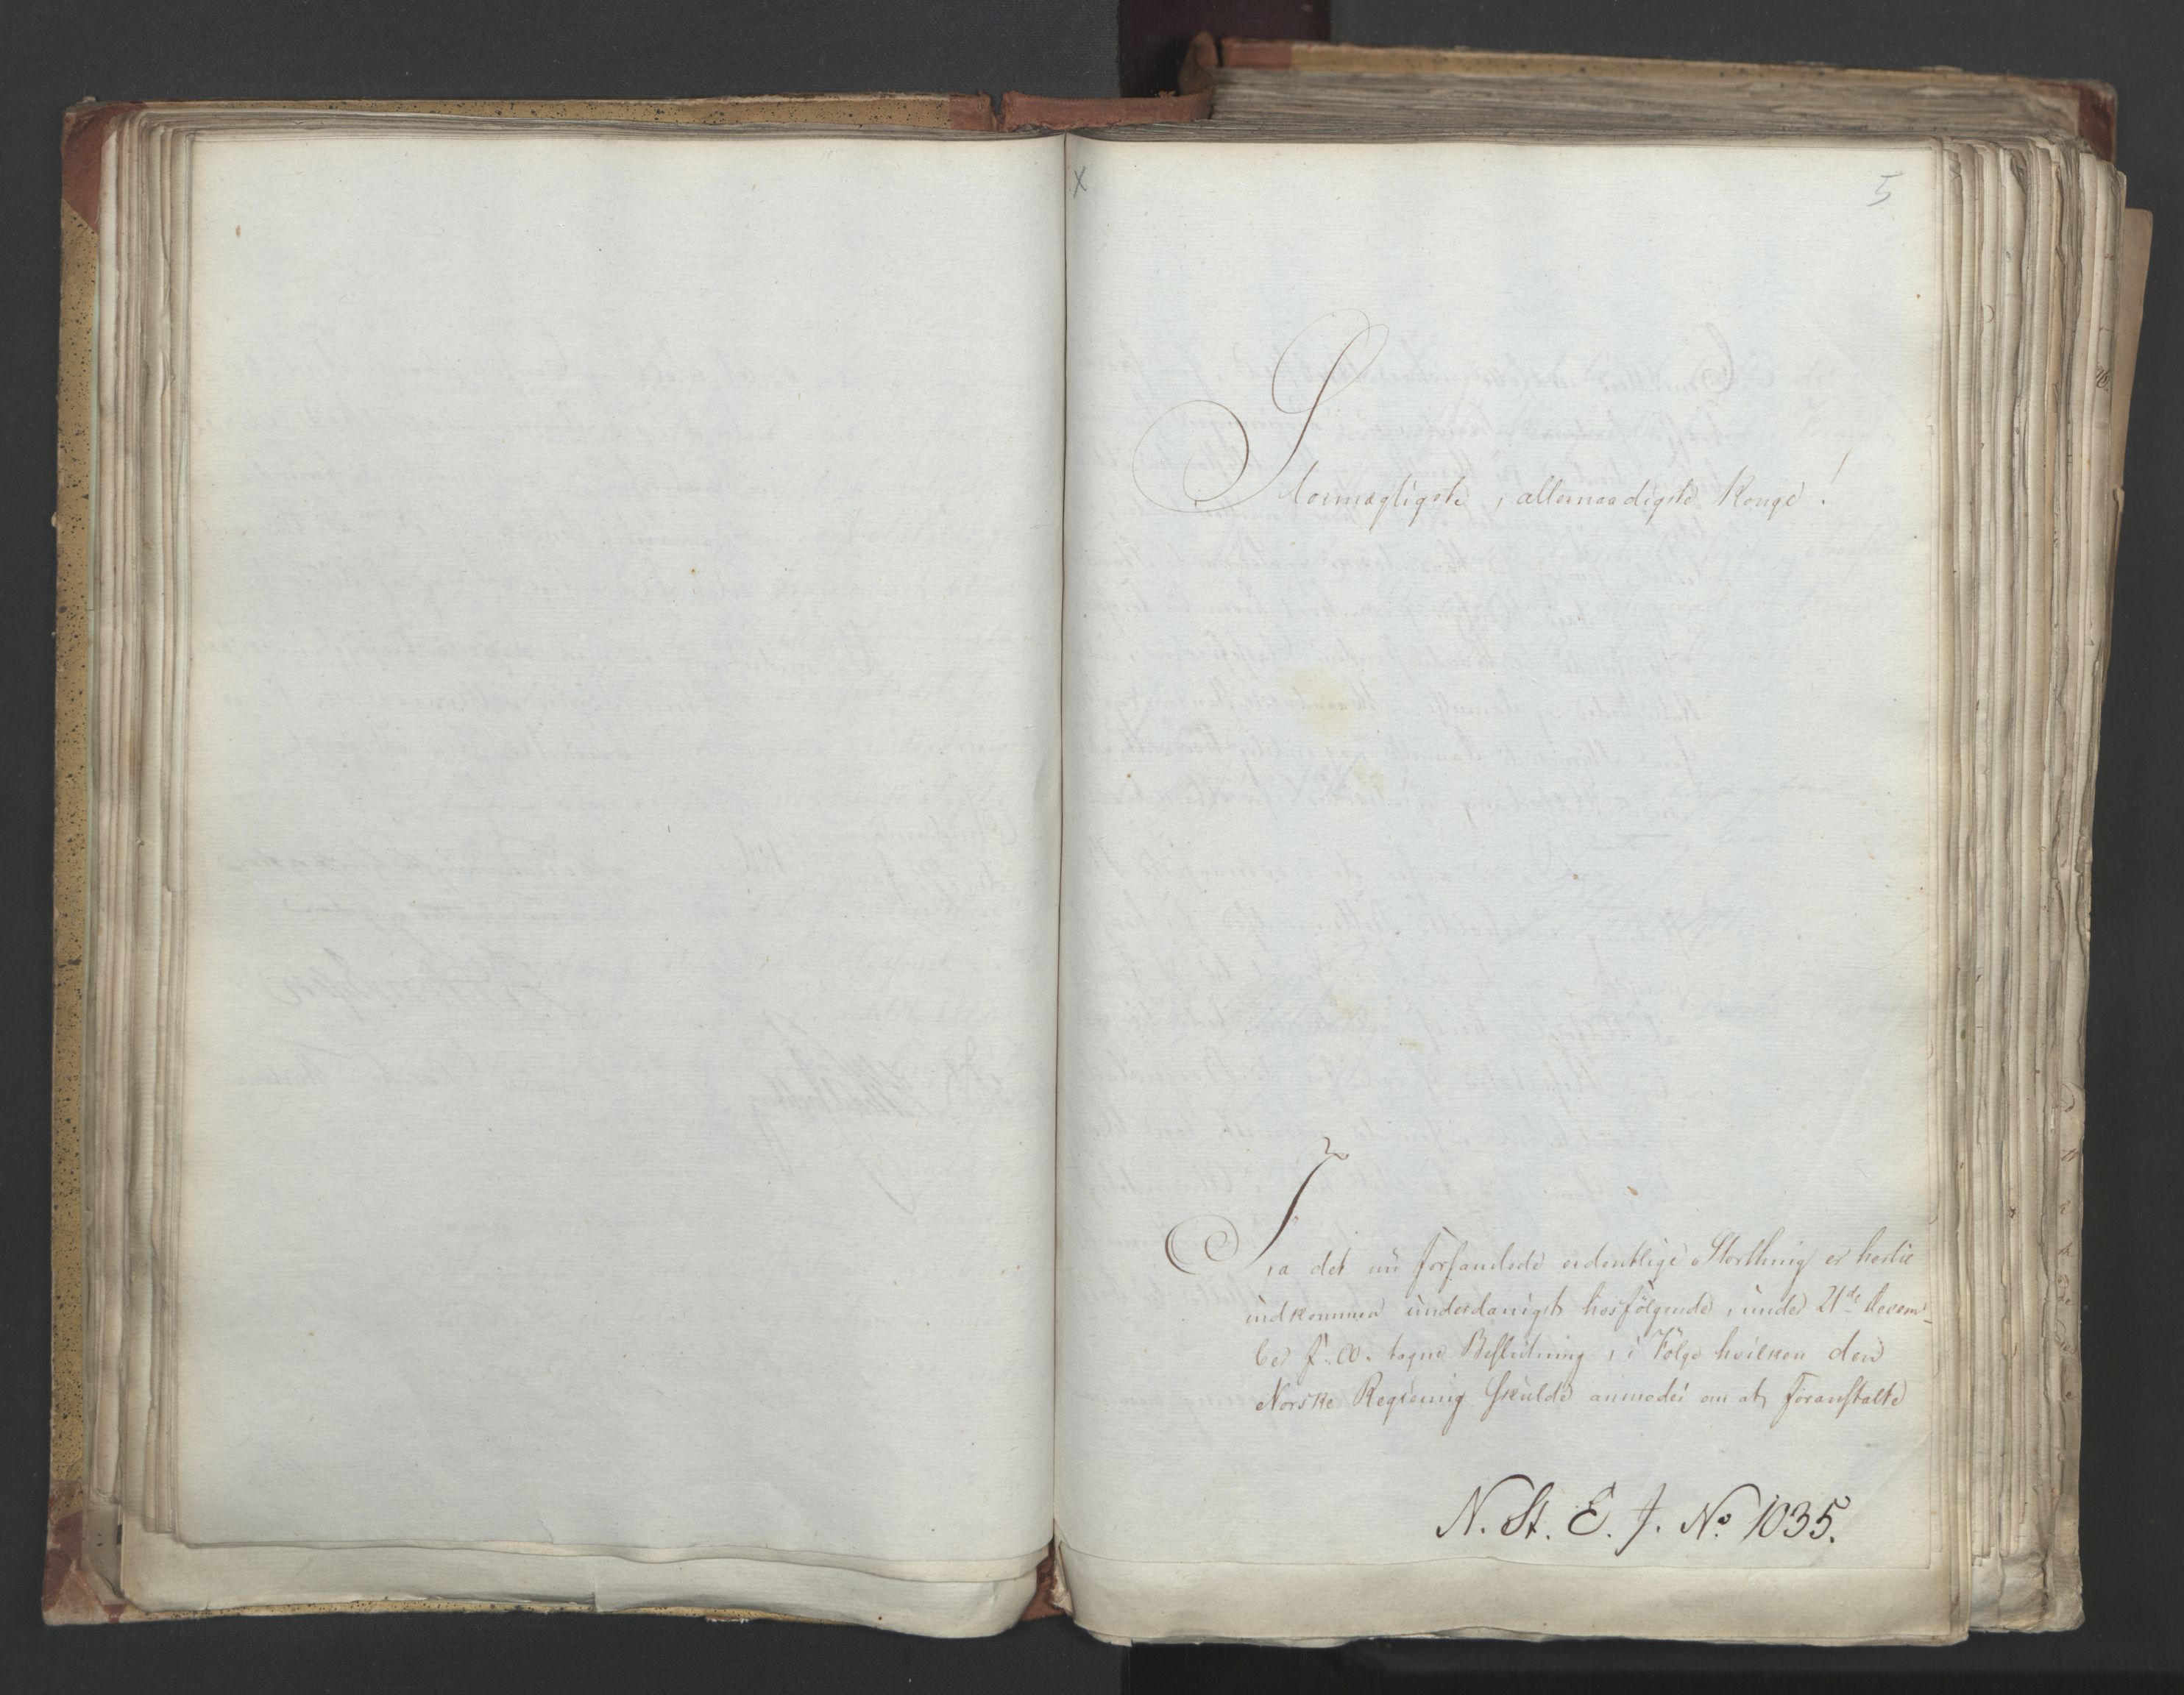 x
5
Stormægtigste, allernaadigste Konge!
Fra det nu forsamlede ordentlige Storthing er hertil
indkommen underdanigst hosfölgende, under 21de Decem-
ber f. A. tagne Beslutning, i Fölge hvilken den
Norske Regiering skulde anmodes om at foranstalte
N. St. E. J. No 1035.